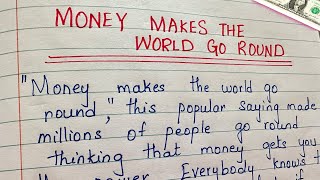 MONEY MAKES THE
WORLD GO ROUND
"Money makes the world go
round," this popular saying made
millions of people go round
thinking that money gets you
power. Everybody knows t